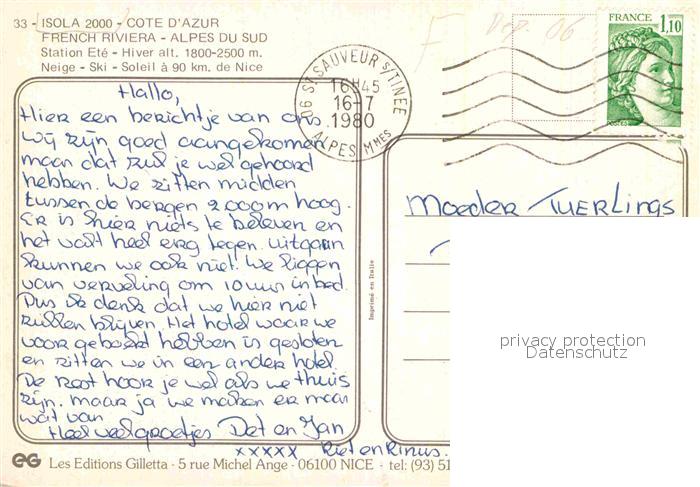 33 - ISOLA 2000 - COTE D'AZUR
FRENCH RIVIERA - ALPES DU SUD
Station Eté - Hiver alt. 1800-2500 m.
Neige - Ski - Soleil à 90 km. de Nice
F
Dep. 06
FRANCE
1,10
06 ST SAUVEUR S/TINEE
16H45
16-7
1980
ALPES MMES
Hallo,
Hier een berichtje van ons
wij zijn goed aangekomen
maar dat zul je wel gehoord
hebben. We zitten midden
tussen de bergen 2000m hoog.
Er is hier niets te beleven en
het valt heel erg tegen. Uitgaan
kunnen we ook niet. We liggen
van verveling om 10 uur in bed.
Dus ik denk dat we hier niet
zullen blijven. Het hotel waar we
voor geboekt hebben is gesloten
en zitten we in een ander hotel.
De rest hoor je wel als we thuis
zijn. maar ja we maken er maar
wat van
Heel veel groetjes Det en Jan
xxxxx Riet en Rinus.
Imprimé en Italie
Moeder Tuerlings
privacy protection
Datenschutz
EG Les Editions Gilletta - 5 rue Michel Ange - 06100 NICE - tel: (93) 51